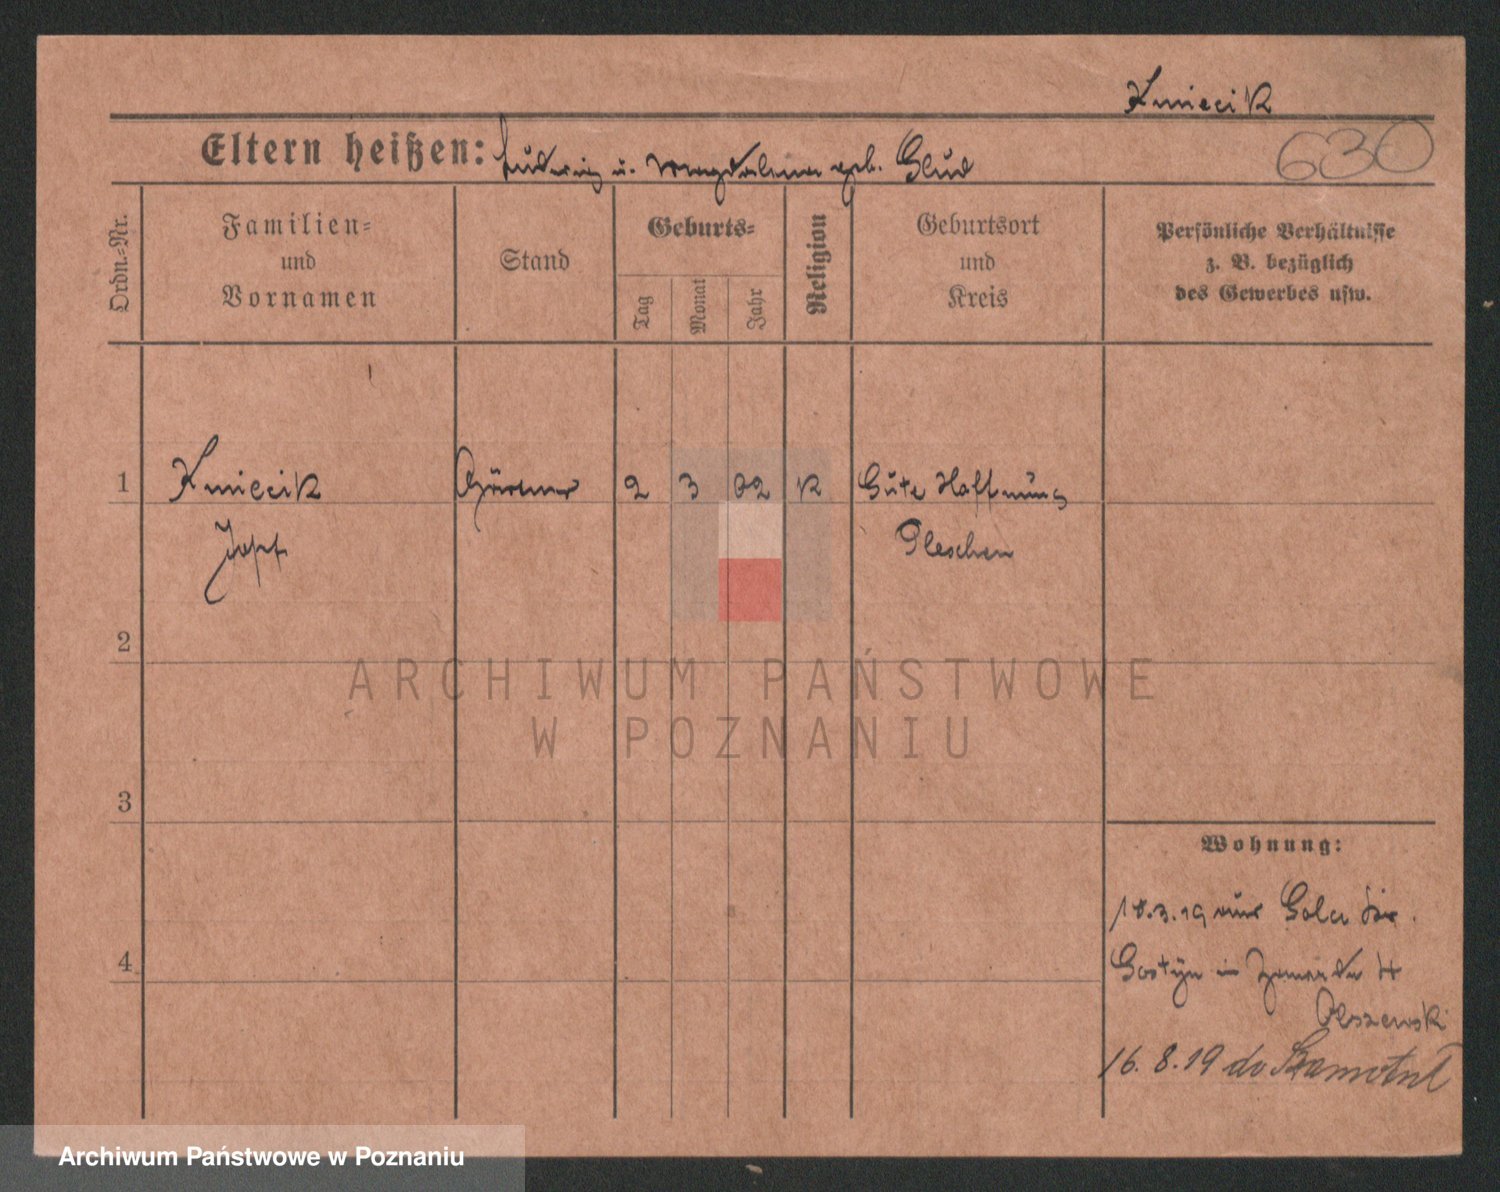 Kmiecik
630
Eltern heißen: Ludwig u. Magdalena geb. Glud
Ordn.-Nr.
Familien- und Vornamen
Stand
Geburts-
Tag
Monat
Jahr
Religion
Geburtsort und Kreis
Persönliche Verhältnisse
z. B. bezüglich
des Gewerbes usw.
1 Kmiecik Gärtner 2 3 02 K Gute Hoffnung
Josef Pleschen
2
ARCHIWUM PAŃSTWOWE
W POZNANIU
3
Wohnung:
18.3.19 aus Gola Kr.
4 Gostyn in
Olszewski
16.8.19 do Szamotuł
Archiwum Państwowe w Poznaniu